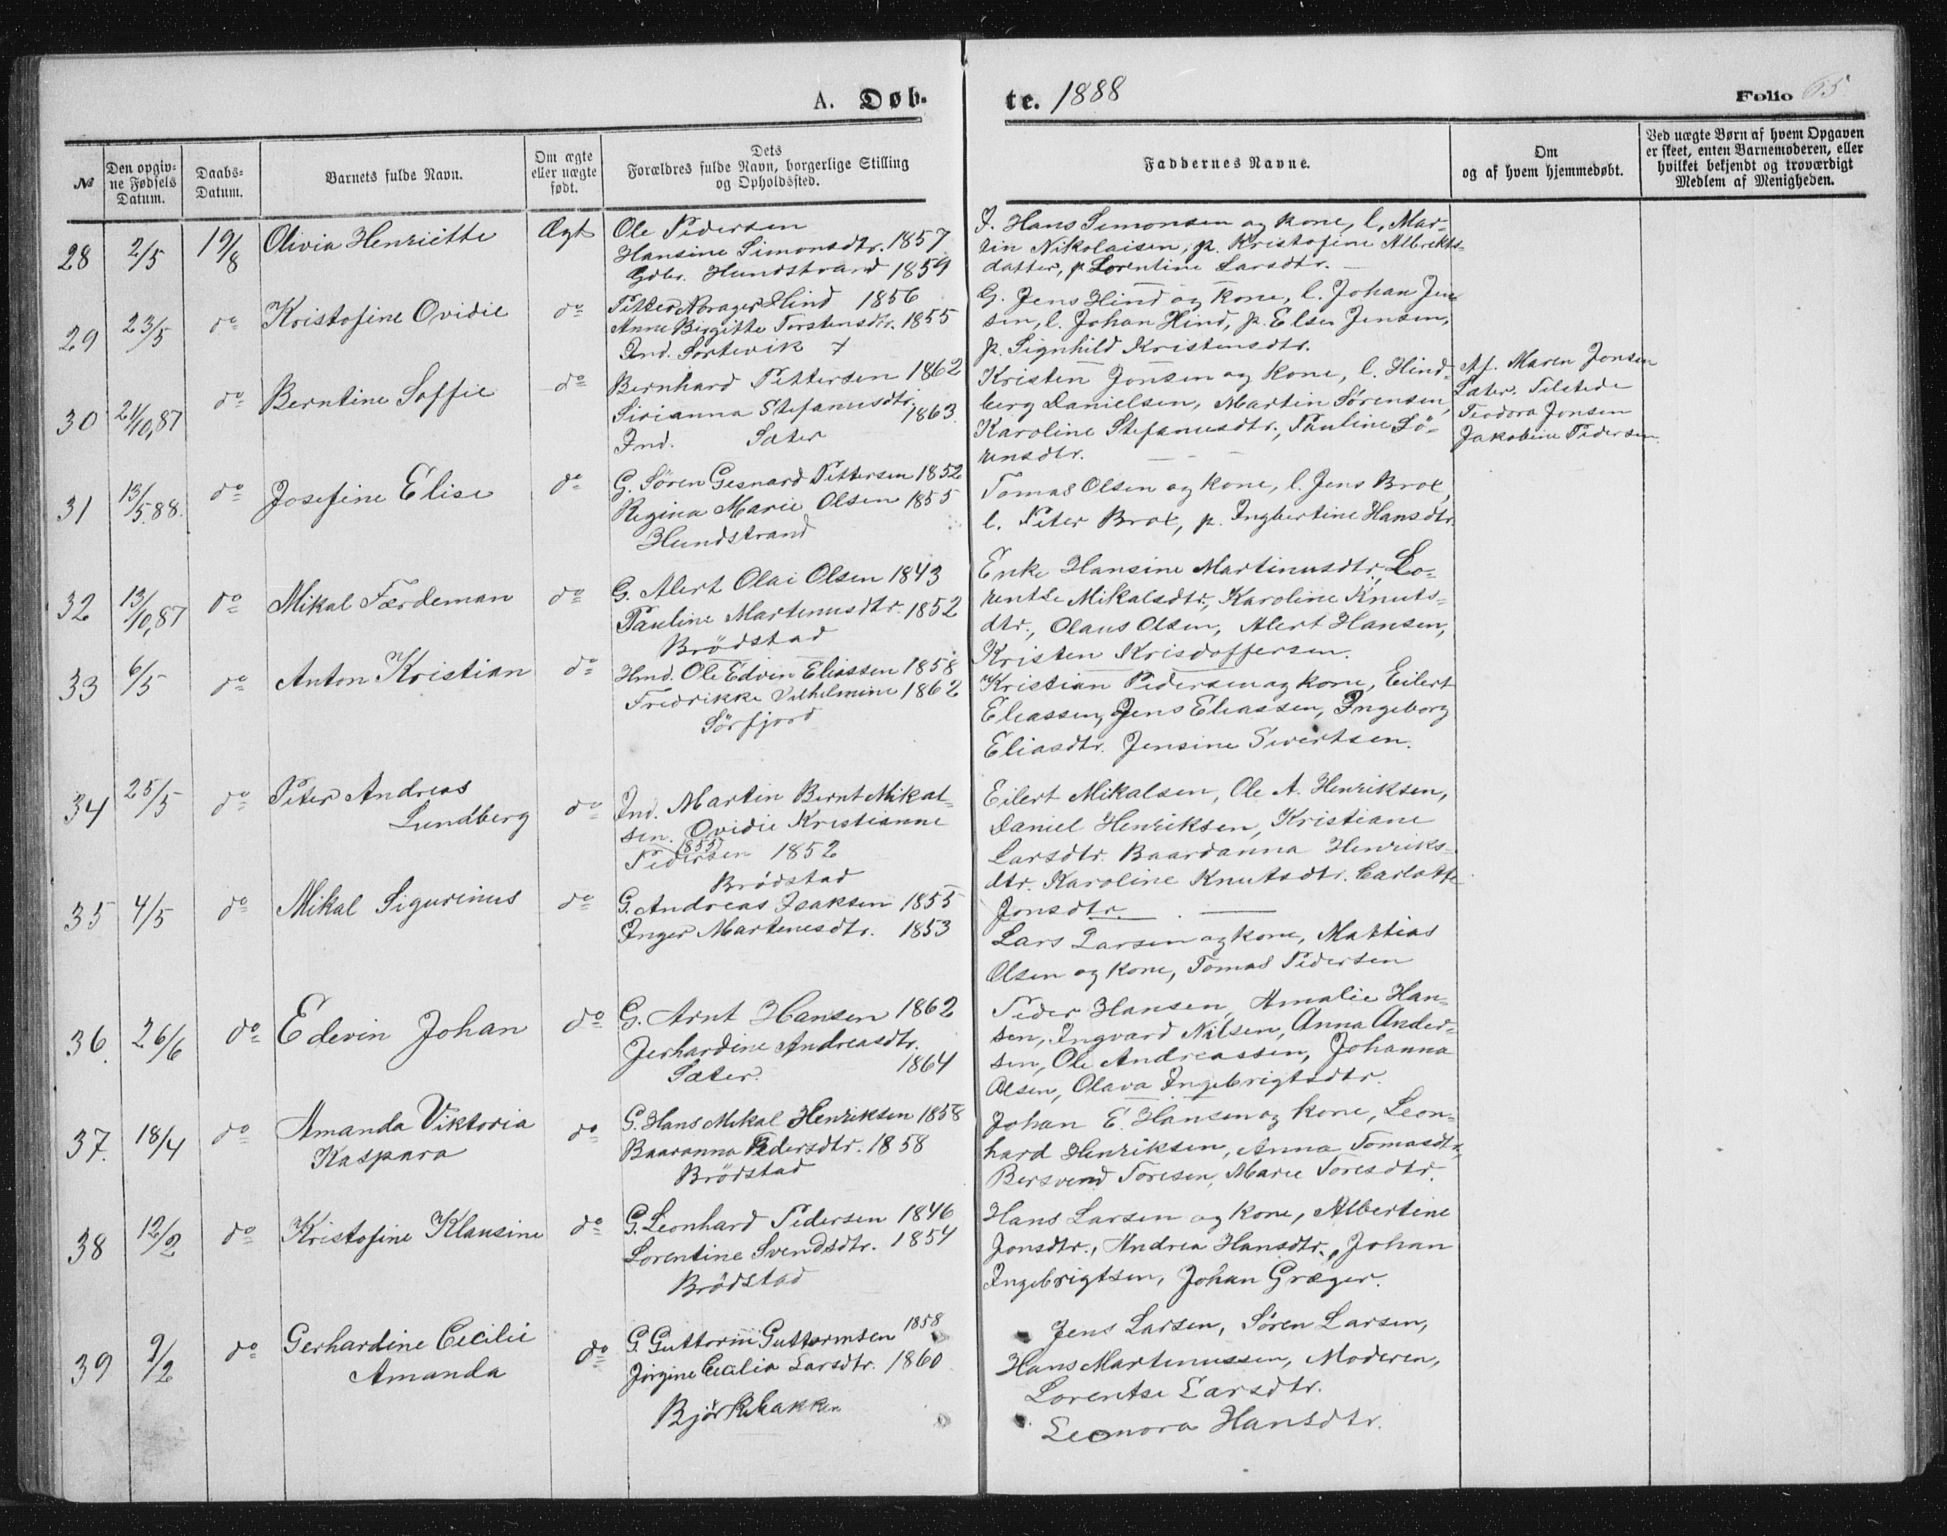 A. Døb-
te. 1888
Folio 65
№
Den opgiv-
ne Fødsels
Datum.
Daabs-
Datum.
Barnets fulde Navn.
Om ægte
eller uægte
født.
Dets
Forældres fulde Navn, borgerlige Stilling
og Opholdssted.
Faddernes Navne.
Om
og af hvem hjemmedøbt.
Ved uægte Børn af hvem Opgaven
er skeet, enten Barnemoderen, eller
hvilket bekjendt og troværdigt
Medlem af Menigheden.
28 2/5 19/8 Olivia Henriette Ægt
Ole Pedersen
Hansine Simonsdtr. 1857
Gdbr. Hundstrand 1859
J. Hans Simonsen og kone, l. Mar-
tin Nikolaisen, p. Kristofine Albrikts-
datter, p Lorentine Larsdtr.
29 23/5 do Kristofine Ovidie do
Petter Norager Hind 1856
Anne Birgitte Torstensdtr. 1855
Ind. Sortevik
G. Jens Hind og kone, l. Johan Jen-
sen, l. Johan Hind, p. Elsen Jensen,
p. Signhild Kristensdtr.
30 21/10,87 do Berntine Soffie do
Bernhard Pettersen 1862
Sirianna Stefanusdtr. 1863.
Ind. Sæter
Kristen Jonsen og kone, l. Hind-
berg Danielsen, Martin Sørensen,
Karoline Stefanusdtr., Pauline Sö-
rensdtr.
Af. Maren Jonsen
Sæter. Tilstede
Teodora Jonsen
Jakobine Pedersen.
31 13/5.88. do Josefine Elise do
G. Sören Gesnard Pettersen 1852
Regina Marie Olsen 1855
Hundstrand
Tomas Olsen og kone, l. Jens Brox,
l. Peter Brox, p. Ingbertine Hansdtr.
32 13/10,87 do Mikal Færdeman do
G. Alert Olai Olsen 1843
Pauline Martinusdtr. 1852
Brödstad
Enke Hansine Martinusdtr., Lo-
rentse Mikalsdtr., Karoline Knuts-
dtr., Olaus Olsen, Alert Hansen,
Kristen Krisdoffersen.
33 6/5 do Anton Kristian do
Hmd. Ole Edvin Eliassen 1858
Fredrikke Vilhelmine 1862
Sörfjord
Kristian Pedersen og kone, Eilert
Eliassen, Jens Eliassen, Ingeborg
Eliasdtr. Jensine Sivertsen.
34 25/5 do Peter Andreas
Lundberg do
Ind. Martin Bernt Mikal-
sen. Ovidie Kristianne
1855
Pedersen 1852
Brödstad
Eilert Mikalsen, Ole A. Henriksen,
Daniel Henriksen, Kristiane
Larsdtr. Baardanna Henriks-
dtr. Karoline Knutsdtr. Carlotte
Jonsdtr.
35 4/5 do Mikal Sigurinus do
G. Andreas Isaksen 1855
Inger Martinesdtr. 1853
Lars Larsen og kone, Mattias
Olsen og kone, Tomas Pedersen
36. 26/6 do Edevin Johan do
G. Arnt Hansen 1862
Jerhardine Andreasdtr.
Sæter. 1864
Peder Hansen, Amalie Han-
sen, Ingvard Nilsen, Anna Ander-
sen, Ole Andreassen, Johanna
Olsen, Olava Ingebrigtsdtr.
37. 18/4 do Amanda Viktoria
Kaspara do
G. Hans Mikal Henriksen 1858
Baaranna Pedersdtr. 1858
Brödstad
Johan E. Hansen og kone, Leon-
hard Henriksen, Anna Tomasdtr,
Bersvend Toresen, Marie Toresdtr.
38 12/2 do Kristofine Klausine do
G. Leonhard Pedersen 1846
Lorentine Svendsdtr. 1854
Brödstad
Hans Larsen og kone, Albertine
Jonsdtr., Andrea Hansdtr., Johan
Ingebrigtsen, Johan Græger.
39 9/2 do Gerhardine Cecilie
Amanda do
G. Guttorm Guttormsen 1858
Jörgine Cecilia Larsdtr. 1860
Björkebakken
Jens Larsen, Sören Larsen,
Hans Martinussen, Moderen,
Lorentse Larsdtr.
Leonora Hansdtr.